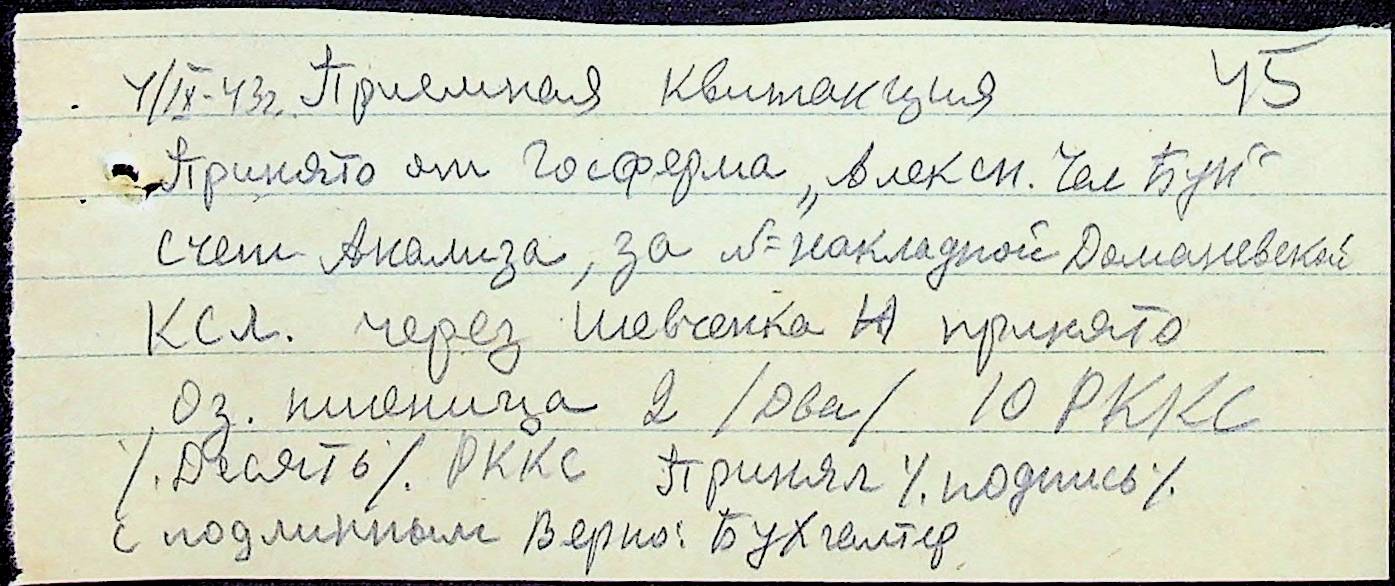 4/IX-43г. Приемная квитакция 45
Принято от Госферма „Алексн. Чел Буй“
счет Анализа, за №= накладной Доманевской
КСЛ. через Шевченка Н принято
Оз. пшеница 2 /Два/ 10 РККС
/.Десять/. РККС Принял /.подпись/.
с подлинным Верно: Бухгалтер